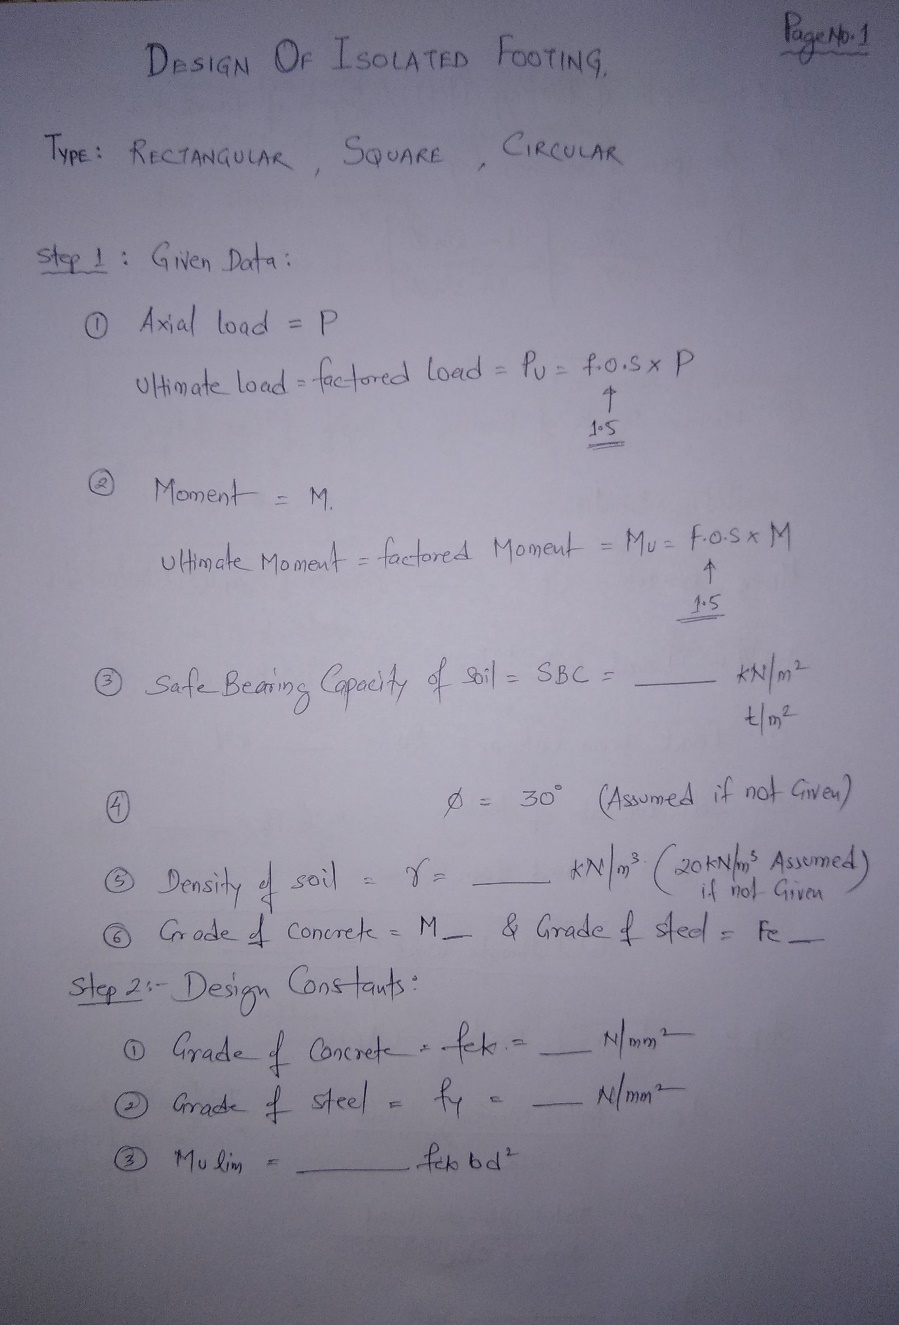 Page No. 1
DESIGN OF ISOLATED FOOTING.
TYPE: RECTANGULAR , SQUARE , CIRCULAR
Step 1 : Given Data :
① Axial load = P
Ultimate load = factored load = Pu = f.o.s x P
↑
1.5
② Moment = M.
Ultimate Moment = factored Moment = Mu = F.O.S x M
↑
1.5
③ Safe Bearing Capacity of soil = SBC = ____ kN/m²
t/m²
④ ø = 30° (Assumed if not Given)
⑤ Density of soil = γ = ____ kN/m³ (20 kN/m³ Assumed)
if not Given
⑥ Grade of concrete = M __ & Grade of steel = Fe __
Step 2 :- Design Constants :
① Grade of Concrete = fck = __ N/mm²
② Grade of steel = fy = __ N/mm²
③ Mu lim = ____ fck bd²